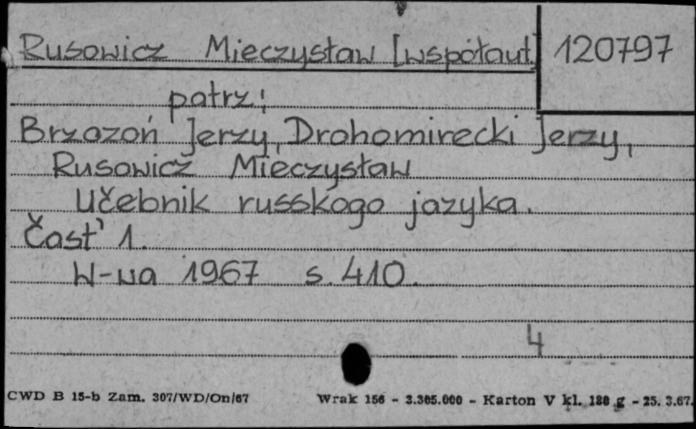 Rusowicz Mieczysław [współaut.] 120797
patrz:
Brzozoń Jerzy, Drohomirecki Jerzy,
Rusowicz Mieczysław
Učebnik russkogo jazyka.
Čast' 1.
W-wa 1967 s. 410.
4
CWD B 15-b Zam. 307/WD/On/67 Wrak 156 - 3.305.000 - Karton V kl. 180 g - 25. 3.67.